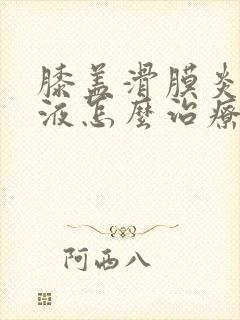 膝盖滑膜炎
液怎麼治療
阿西八